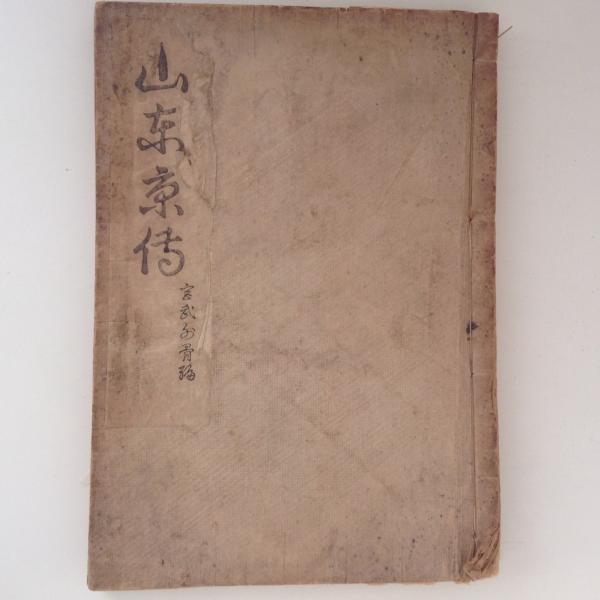 山东京传
宮武外骨編